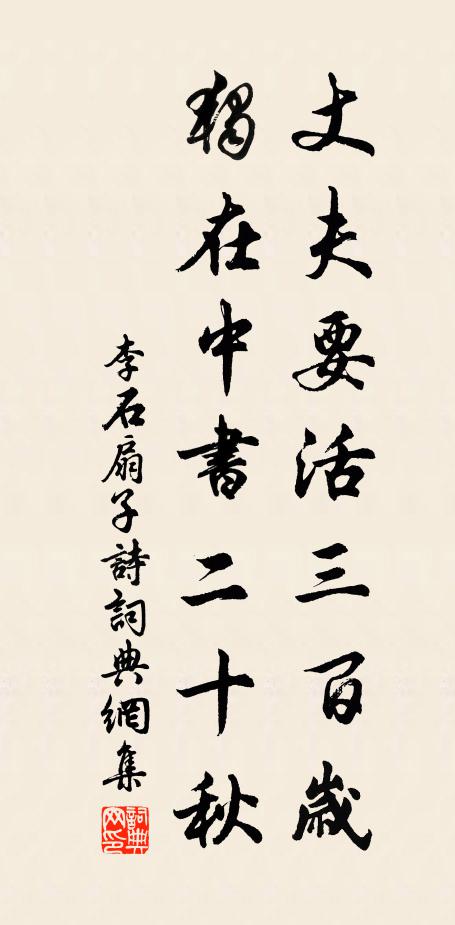 丈夫要活三百歲
獨在中書二十秋
李石扇子詩詞典網集
詞典
网印